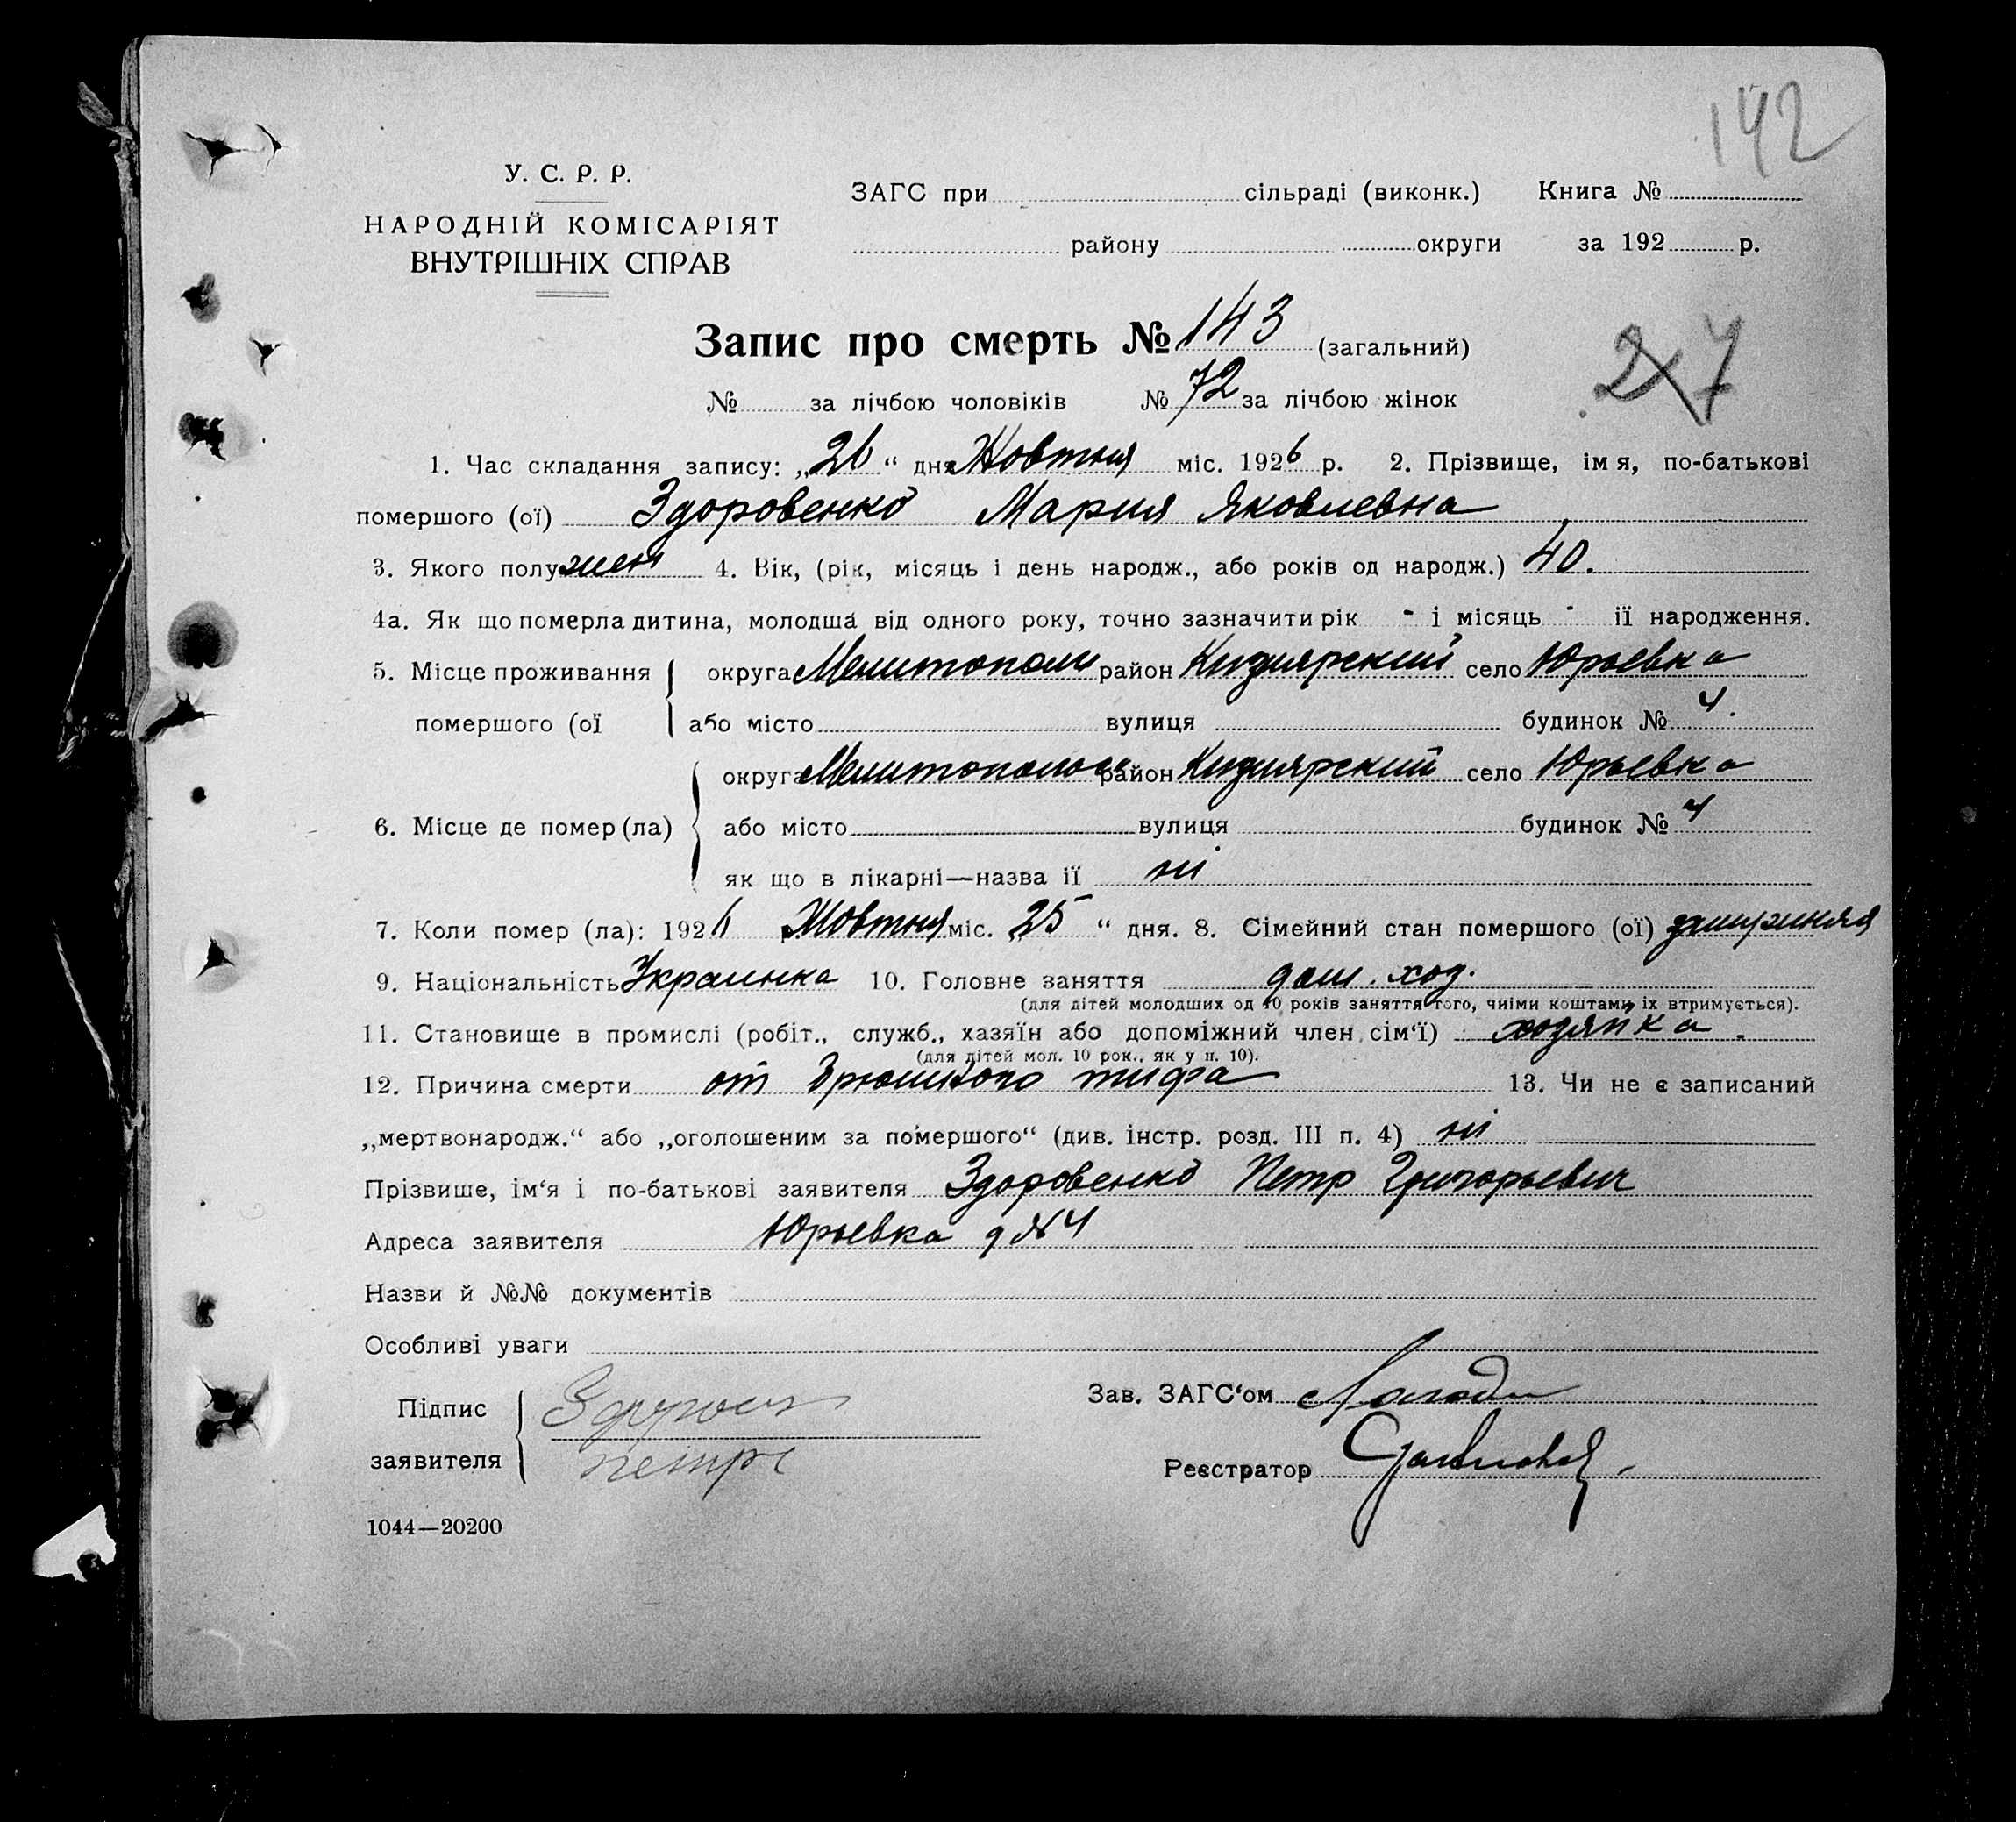 142
У. С. Р. Р.
НАРОДНІЙ КОМІСАРІЯТ
ВНУТРІШНІХ СПРАВ
ЗАГС при сільраді (виконк.) Книга №
району округи за 192 р.
Запис про смерть № 143 (загальний)
27
№ за лічбою чоловіків № 72 за лічбою жінок
1. Час складання запису: „26“ дня Жовтня міс. 1926 р. 2. Прізвище, імя, по-батькові
помершого (ої) Здоровенко Мария Яковлевна
3. Якого полу жен 4. Вік, (рік, місяць і день народж., або років од народж.) 40.
4а. Як що померла дитина, молодша від одного року, точно зазначити рік - і місяць - її народження.
5. Місце проживання округа Мелитополи район Кизиярский село Юрьевка
помершого (ої або місто вулиця будинок № 4.
округа Мелитополь район Кизиярский село Юрьевка
6. Місце де помер (ла) або місто вулиця будинок № 4
як що в лікарні—назва ії ні
7. Коли помер (ла): 1926 р. Жовтня міс. „25“ дня. 8. Сімейний стан помершого (ої)
9. Національність Украинка 10. Головне заняття дом. хоз.
(для дітей молодших од 10 років заняття того, чиїми коштами їх втримується).
11. Становище в промислі (робіт., служб., хазяїн або допоміжний член сім‘ї) хозяйка.
(для дітей мол. 10 рок., як у п. 10).
12. Причина смерти от брюшного тифа 13. Чи не є записаний
„мертвонародж.“ або „оголошеним за помершого“ (див. інстр. розд. III п. 4) ні
Прізвише, ім‘я і по-батькові заявителя Здоровенко Петр Григорьевич
Адреса заявителя Юрьевка д №4
Назви й №№ документів
Особливі уваги
Підпис
заявителя
Зав. ЗАГС‘ом
Реєстратор
1044—20200